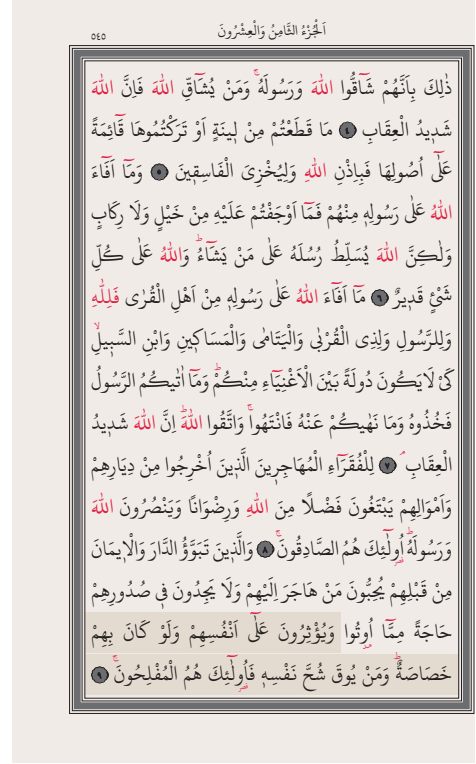 اَلْجُزْءُ الثَّامِنُ وَالْعِشْرُونَ
٥٤٥
ذٰلِكَ بِاَنَّهُمْ شَٓاقُّوا اللّٰهَ وَرَسُولَهُۚ وَمَنْ يُشَٓاقِّ اللّٰهَ فَاِنَّ اللّٰهَ
شَدٖيدُ الْعِقَابِ ﴿٤﴾ مَا قَطَعْتُمْ مِنْ لٖينَةٍ اَوْ تَرَكْتُمُوهَا قَٓائِمَةً
عَلٰٓى اُصُولِهَا فَبِاِذْنِ اللّٰهِ وَلِيُخْزِىَ الْفَاسِقٖينَ ﴿٥﴾ وَمَٓا اَفَٓاءَ
اللّٰهُ عَلٰى رَسُولِهٖ مِنْهُمْ فَمَٓا اَوْجَفْتُمْ عَلَيْهِ مِنْ خَيْلٍ وَلَا رِكَابٍ
وَلٰكِنَّ اللّٰهَ يُسَلِّطُ رُسُلَهُ عَلٰى مَنْ يَشَٓاءُؕ وَاللّٰهُ عَلٰى كُلِّ
شَىْءٍ قَدٖيرٌ ﴿٦﴾ مَٓا اَفَٓاءَ اللّٰهُ عَلٰى رَسُولِهٖ مِنْ اَهْلِ الْقُرٰى فَلِلّٰهِ
وَلِلرَّسُولِ وَلِذِى الْقُرْبٰى وَالْيَتَامٰى وَالْمَسَاكٖينِ وَابْنِ السَّبٖيلِۙ
كَىْ لَا يَكُونَ دُولَةً بَيْنَ الْاَغْنِيَٓاءِ مِنْكُمْؕ وَمَٓا اٰتٰيكُمُ الرَّسُولُ
فَخُذُوهُ وَمَا نَهٰيكُمْ عَنْهُ فَانْتَهُواۚ وَاتَّقُوا اللّٰهَؕ اِنَّ اللّٰهَ شَدٖيدُ
الْعِقَابِۘ ﴿٧﴾ لِلْفُقَرَٓاءِ الْمُهَاجِرٖينَ الَّذٖينَ اُخْرِجُوا مِنْ دِيَارِهِمْ
وَاَمْوَالِهِمْ يَبْتَغُونَ فَضْلًا مِنَ اللّٰهِ وَرِضْوَانًا وَيَنْصُرُونَ اللّٰهَ
وَرَسُولَهُؕ اُولٰٓئِكَ هُمُ الصَّادِقُونَۚ ﴿٨﴾ وَالَّذٖينَ تَبَوَّؤُ الدَّارَ وَالْاٖيمَانَ
مِنْ قَبْلِهِمْ يُحِبُّونَ مَنْ هَاجَرَ اِلَيْهِمْ وَلَا يَجِدُونَ فٖى صُدُورِهِمْ
حَاجَةً مِمَّٓا اُو۫تُوا وَيُؤْثِرُونَ عَلٰٓى اَنْفُسِهِمْ وَلَوْ كَانَ بِهِمْ
خَصَاصَةٌؕ وَمَنْ يُوقَ شُحَّ نَفْسِهٖ فَاُولٰٓئِكَ هُمُ الْمُفْلِحُونَۚ ﴿٩﴾